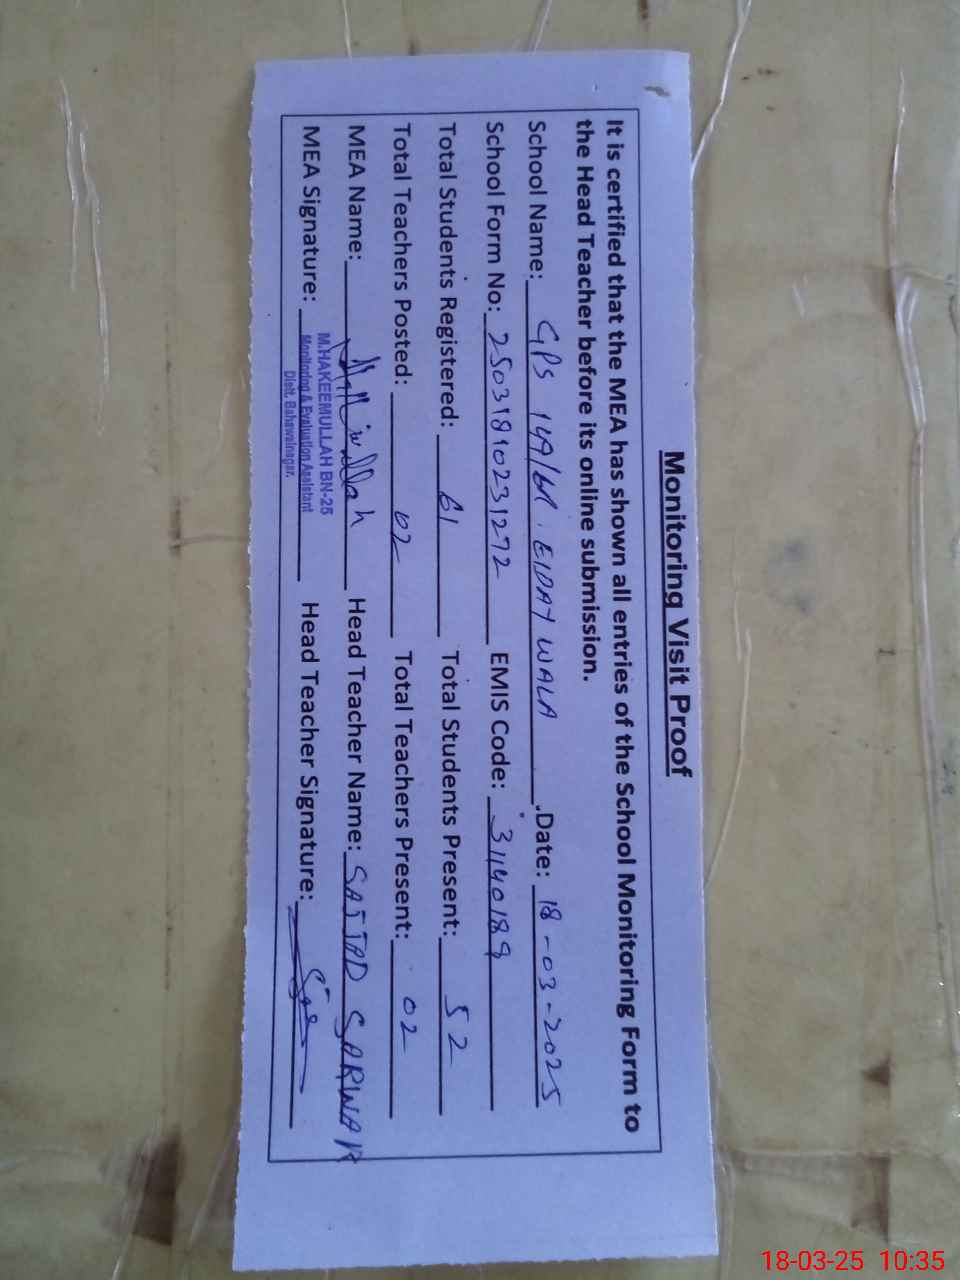 Monitoring Visit Proof
It is certified that the MEA has shown all entries of the School Monitoring Form to
the Head Teacher before its online submission.
School Name: GPS 149/6R. EIDAY WALA .Date: 18-03-2025
School Form No: 250318910231272 EMIS Code: 31140189
Total Students Registered: 61 Total Students Present: 52
Total Teachers Posted: 02 Total Teachers Present: 02
MEA Name: Head Teacher Name: SAJJAD SARWAR
MEA Signature: Head Teacher Signature:
M.HAKEEMULLAH BN-25
Monitoring & Evaluation Assistant
Distt. Bahawalnagar.
18-03-25 10:35